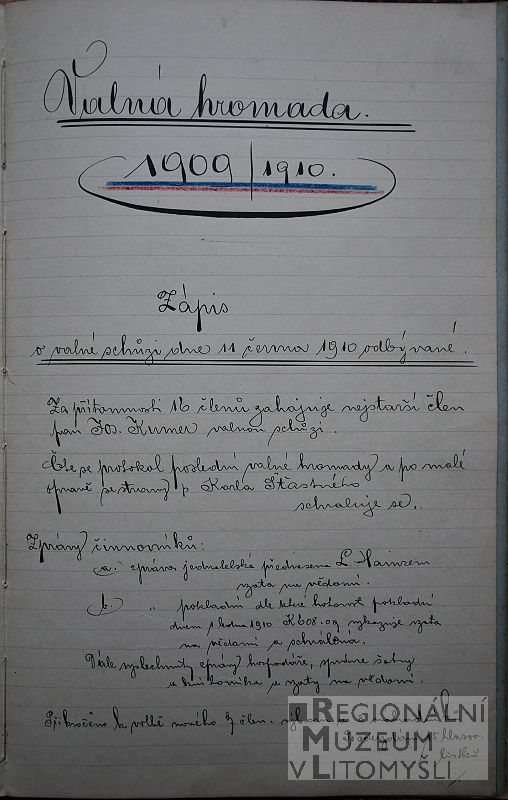 Valná hromada.
1909/1910.
Zápis
o valné schůzi dne 11 června 1910 odbývané.
Za přítomnosti 16 členů zahajuje nejstarší člen
pan Jos. Kumer valnou schůzi.
Čte se protokol poslední valné hromady a po malé
opravě se strany p Karla Šťastného
schvaluje se.
Zprávy činovníků:
a. zpráva jednatelská přednesena L. Hainzem
vzata na vědomí.
b. " pokladní dle které hotovost pokladní
dnem 1 ledna 1910 K 608.09 vykazuje vzata
na vědomí a schválena.
Dále vyslechnuty zprávy hospodáře, správce šatny
a vzaty na vědomí.
Přikročeno k volbě nového 7 člen.
lístků
REGIONÁLNÍ
MUZEUM
V LITOMYŠLI